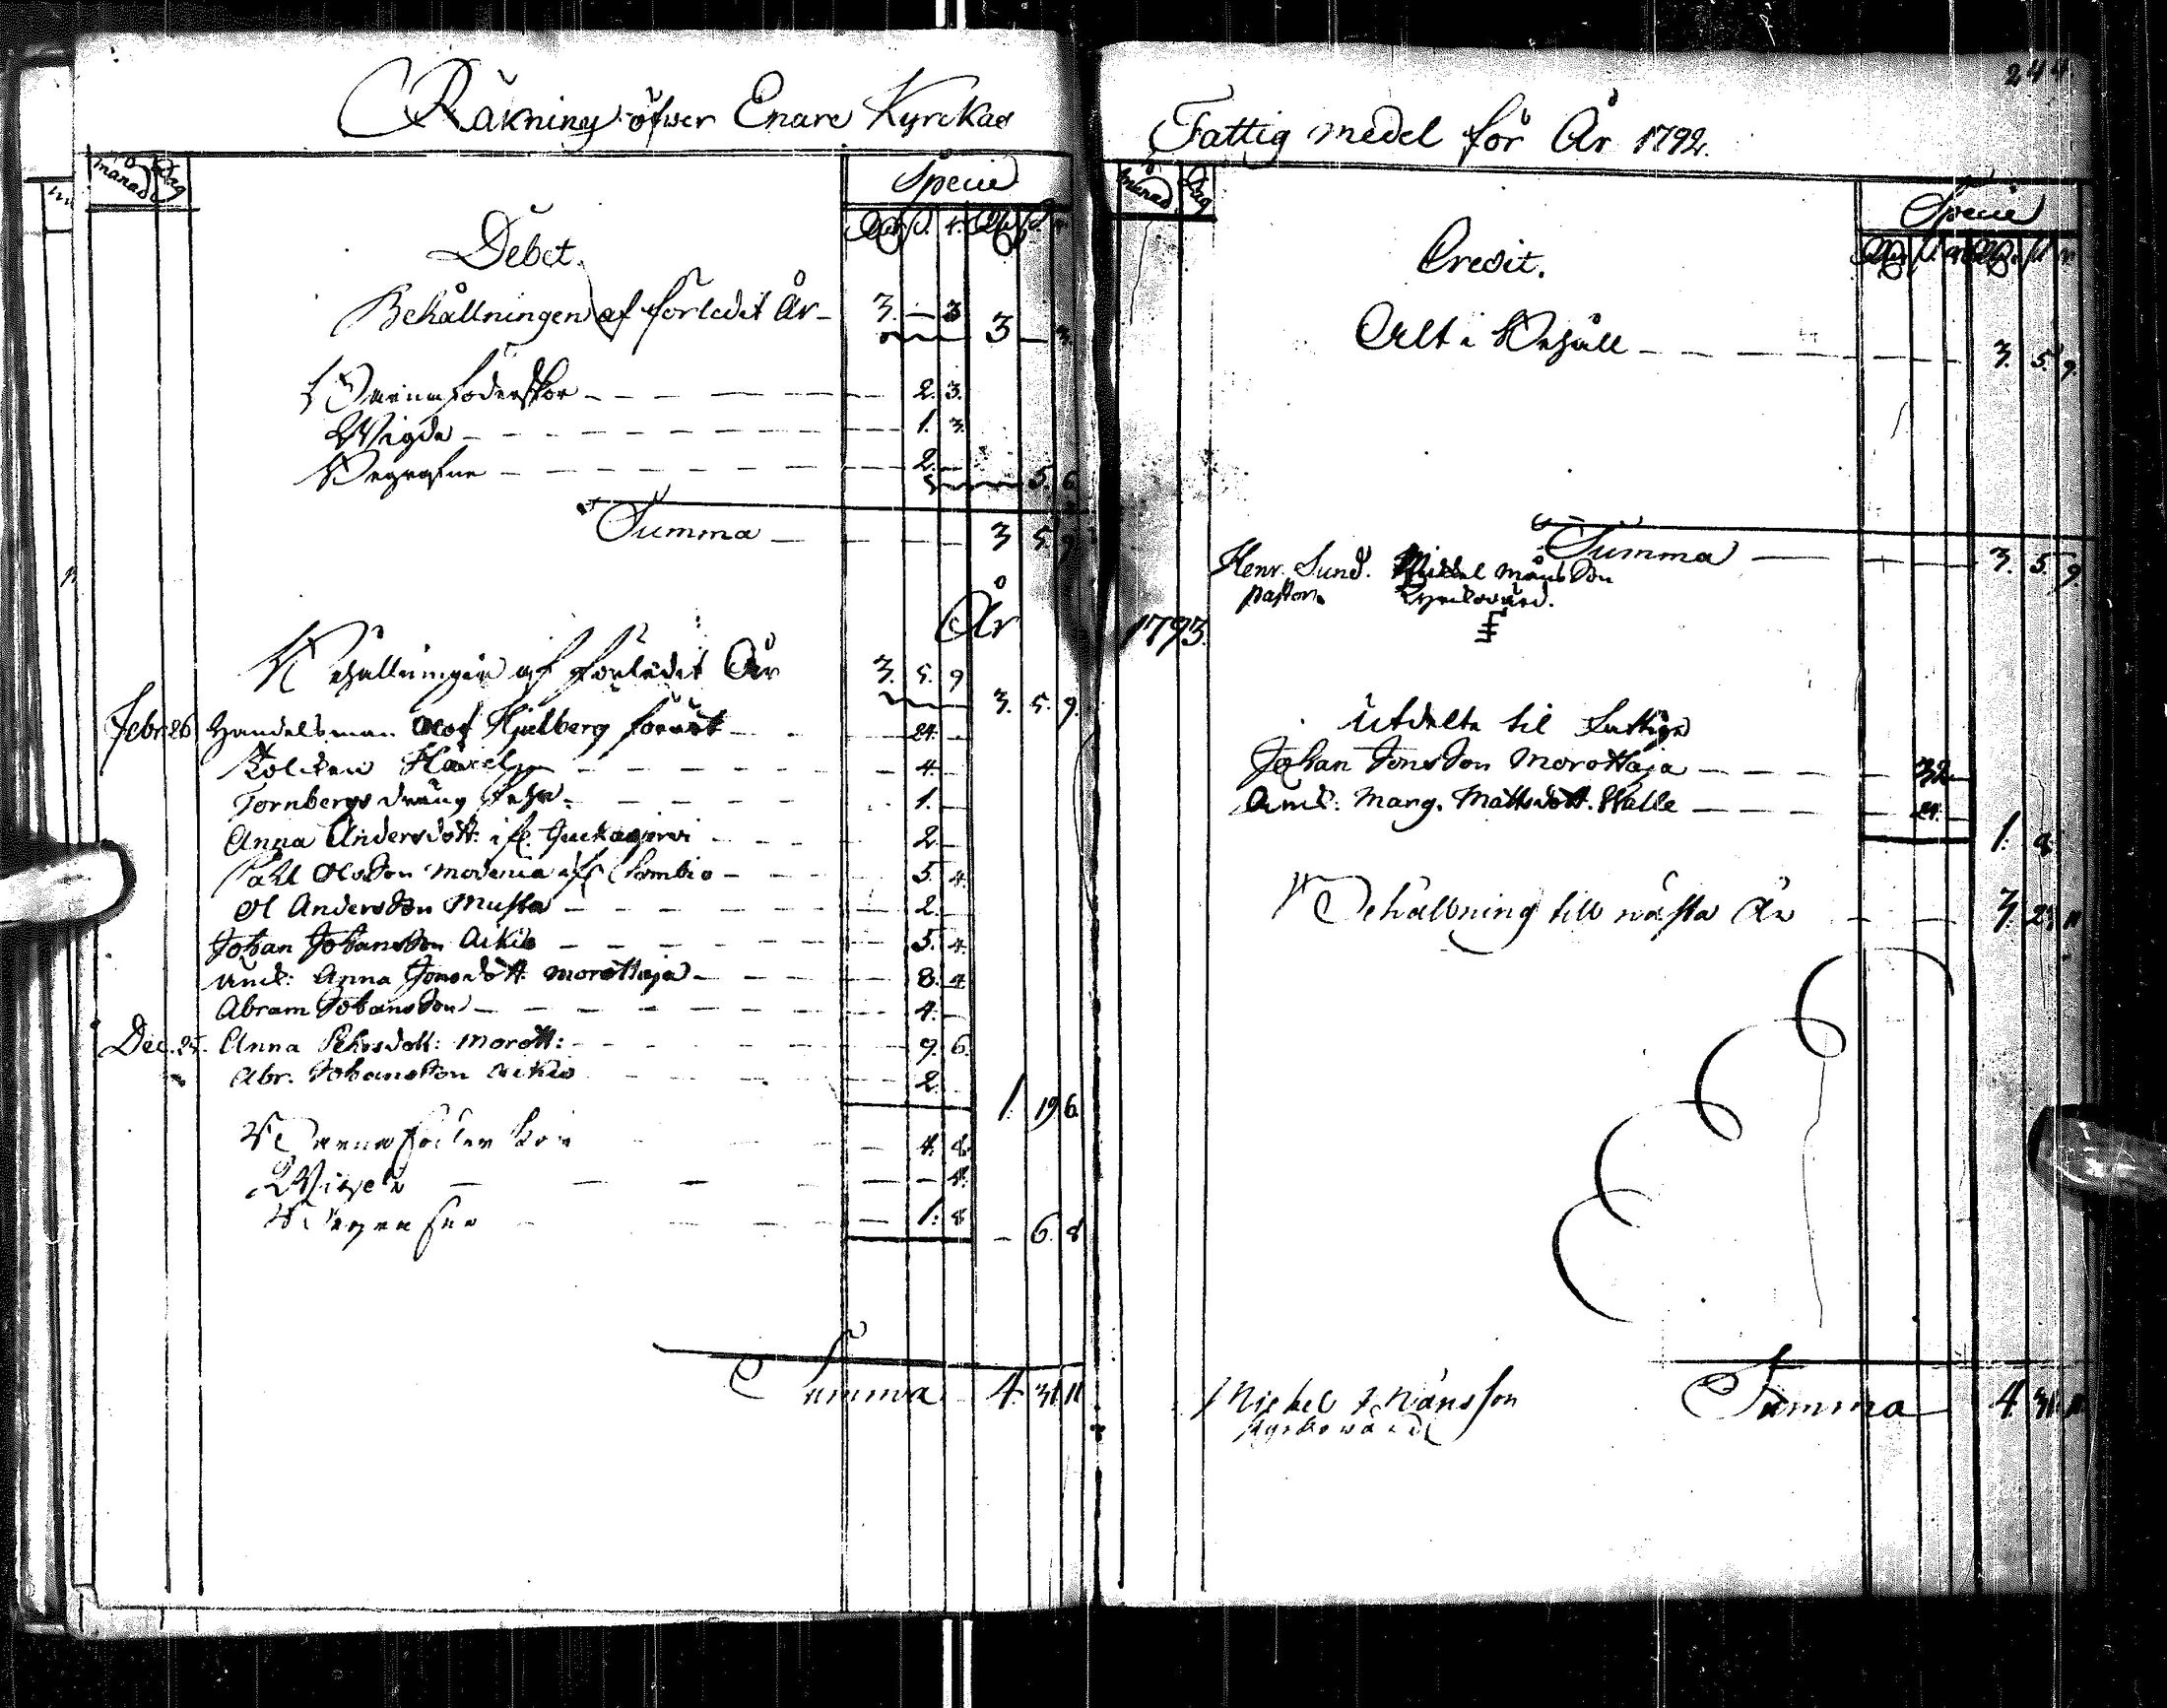 Räkning öfwer Enare Kyrckas
månad Dag
Specie
Debet.
Behållningen af förledit År - 3. - 3
3 - 3.
Barnaföderskor - 2. 3.
Wigde - 1. 3.
Begrafne - 2. -
5. 6
Summa - 3 5. 9.
År
Behållningen af förledit År 3. 5. 9
3. 5. 9.
Febr. 26 Handelsman Olof Hjelberg förärt - 24. -
- 4. -
Tornbergs dräng - 1. -
Anna Andersdott: - 2. -
Påhl Olsson - 5. 4.
Ol Andersson Musta - 2. -
Johan Johansson Aikio - 5. 4.
Anna Jonsdott. Morottaja - 8. 4
Abram Johansson - 4. -
Dec. 25. Anna Pehrsdott: Morott: - 9. 6.
Abr. Johansson Aikio 2.
1. 19 6.
Barnaföderskor - 4. 8.
Wigde - 4.
Begrafne - 1. 8
- 6. 8
Summa 4. 31 11
244.
Fattig medel för År 1792.
månad Dag
Specie
Credit.
Alt i Behåll - 3. 5. 9.
Summa - 3. 5. 9.
Henr. Sund. Michel Månsson
pastor. Kyrckovärd.
1793.
Utdelte til Fattige
Johan Jonsson Morottaja - 32 -
Marg. Mattsdott. Walle - 24. -
1. 8.
Behållning till nästa År - 3. 23 11
Michel Månsson Summa 4. 31. 11.
Kyrkowärd